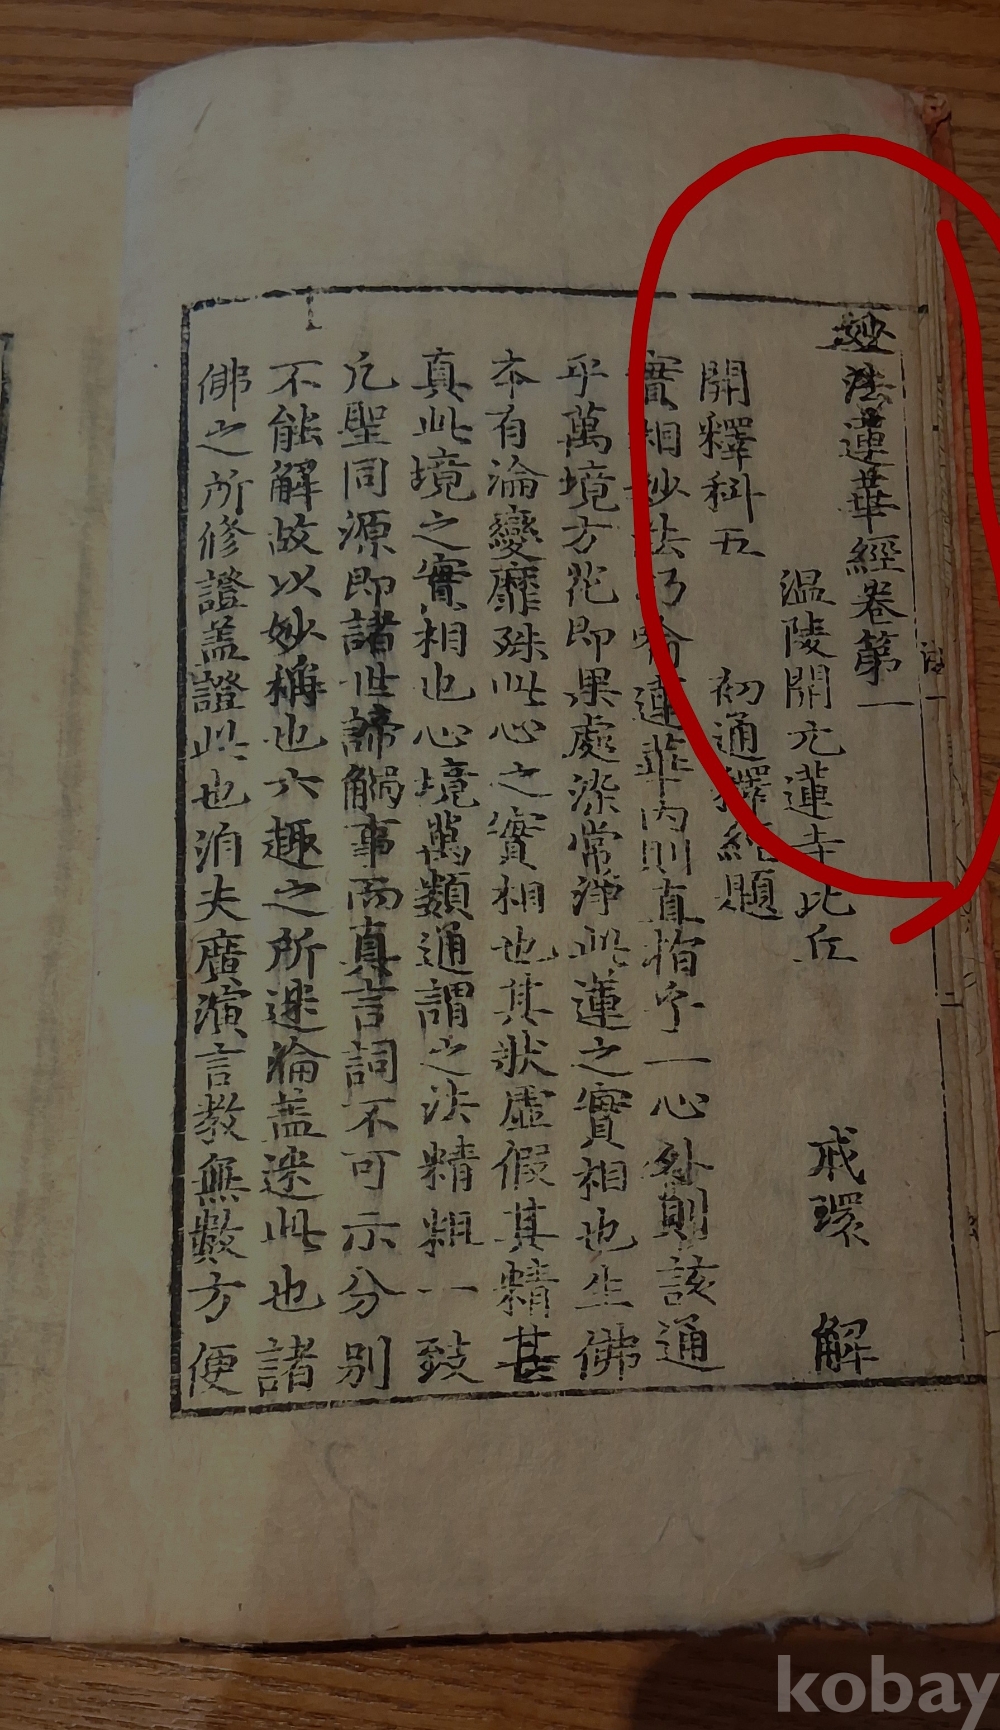 妙法蓮華經卷第一
温陵開元蓮寺比丘 戒環 解
開釋科五 初通釋經題
實相妙法巧喻蓮華內則直指乎一心外則該通
乎萬境方花即果處染常淨此蓮之實相也生佛
本有淪變靡殊此心之實相也其狀虛假其精甚
真此境之實相也心境萬類通謂之法精粗一致
凡聖同源即諸世諦觸事而真言詞不可示分別
不能解故以妙稱也六趣之所迷淪盖迷此也諸
佛之所修證盖證此也洎夫廣演言教無數方便
kobay